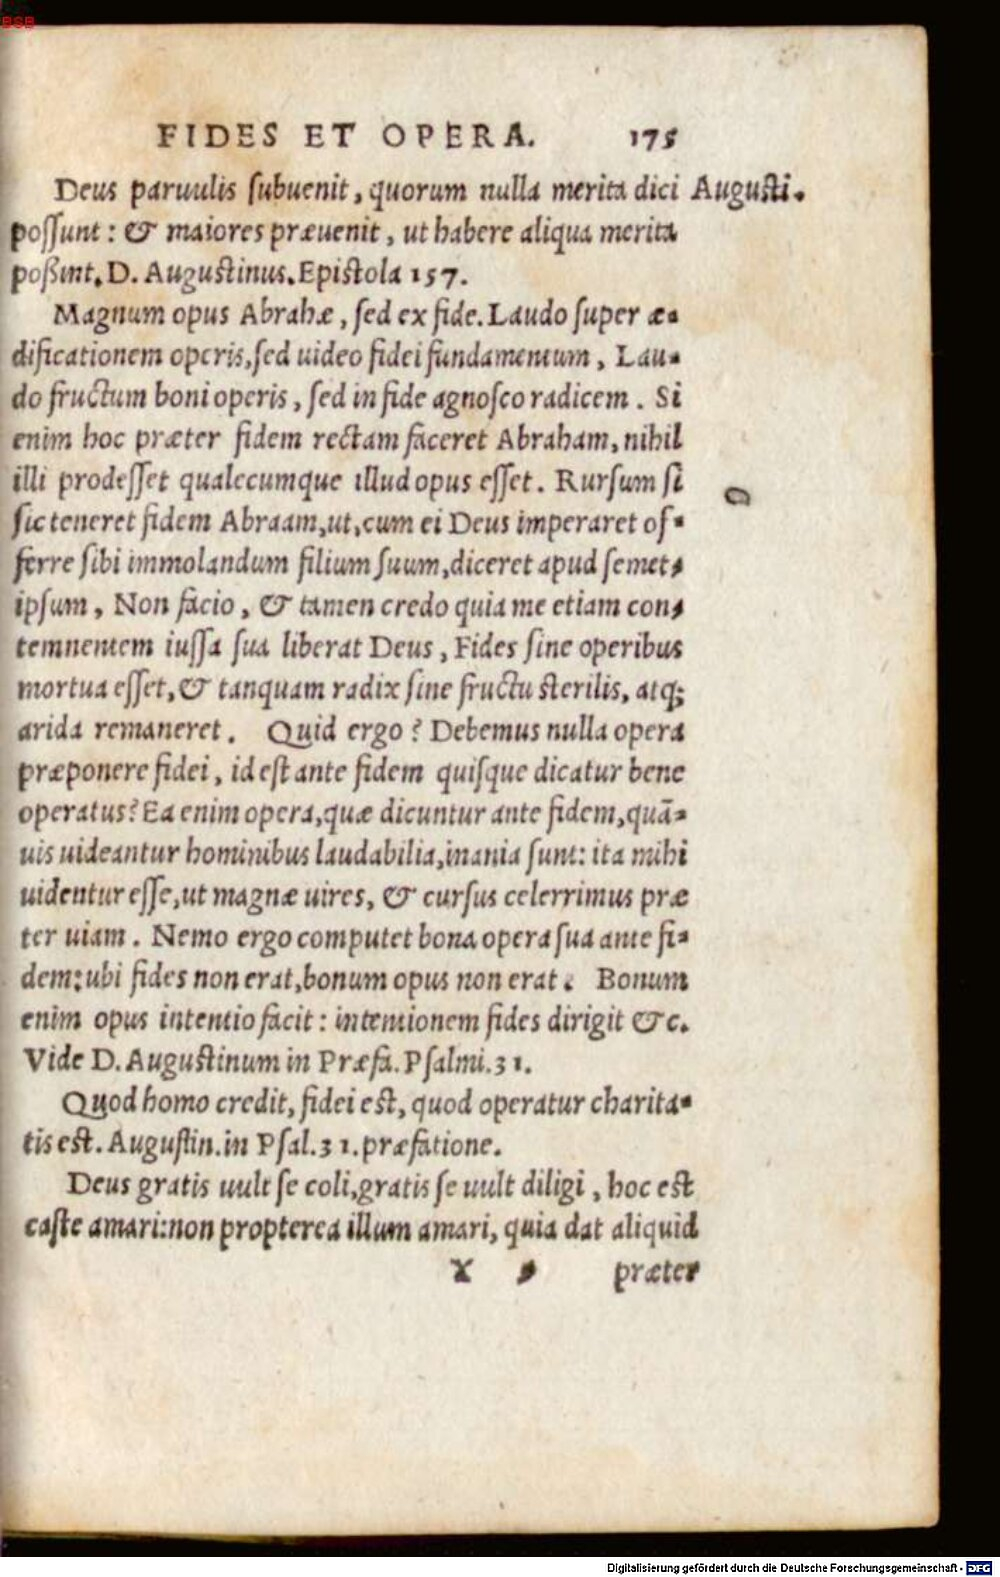 BSB
FIDES ET OPERA. 175
Deus paruulis subuenit, quorum nulla merita dici Augusti.
possunt: & maiores præuenit, ut habere aliqua merita
poßint. D. Augustinus. Epistola 157.
Magnum opus Abrahæ, sed ex fide. Laudo super æ-
dificationem operis, sed uideo fidei fundamentum, Lau-
do fructum boni operis, sed in fide agnosco radicem. Si
enim hoc præter fidem rectam faceret Abraham, nihil
illi prodesset qualecumque illud opus esset. Rursum si
sic teneret fidem Abraam, ut, cum ei Deus imperaret of-
ferre sibi immolandum filium suum, diceret apud semet-
ipsum, Non facio, & tamen credo quia me etiam con-
temnentem iussa sua liberat Deus, Fides sine operibus
mortua esset, & tanquam radix sine fructu sterilis, atq;
arida remaneret. Quid ergo? Debemus nulla opera
præponere fidei, id est ante fidem quisque dicatur bene
operatus? Ea enim opera, quæ dicuntur ante fidem, quā-
uis uideantur hominibus laudabilia, inania sunt: ita mihi
uidentur esse, ut magnæ uires, & cursus celerrimus præ
ter uiam. Nemo ergo computet bona opera sua ante fi-
dem: ubi fides non erat, bonum opus non erat. Bonum
enim opus intentio facit: intentionem fides dirigit &c.
Vide D. Augustinum in Præfa. Psalmi. 31.
Quod homo credit, fidei est, quod operatur charita-
tis est. Augustin. in Psal. 31. præfatione.
Deus gratis uult se coli, gratis se uult diligi, hoc est
caste amari: non propterea illum amari, quia dat aliquid
præter
Digitalisierung gefördert durch die Deutsche Forschungsgemeinschaft - DFG